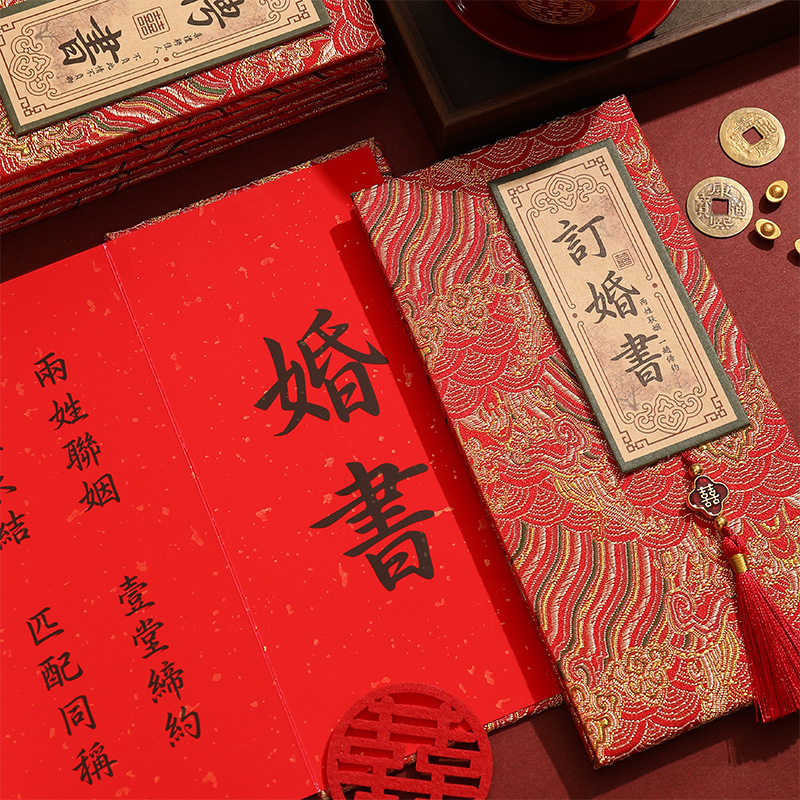 聘書
婚書
兩姓聯姻
壹堂締約
結
匹配同稱
訂婚書
兩姓聯姻 締約
囍
囍
康熙